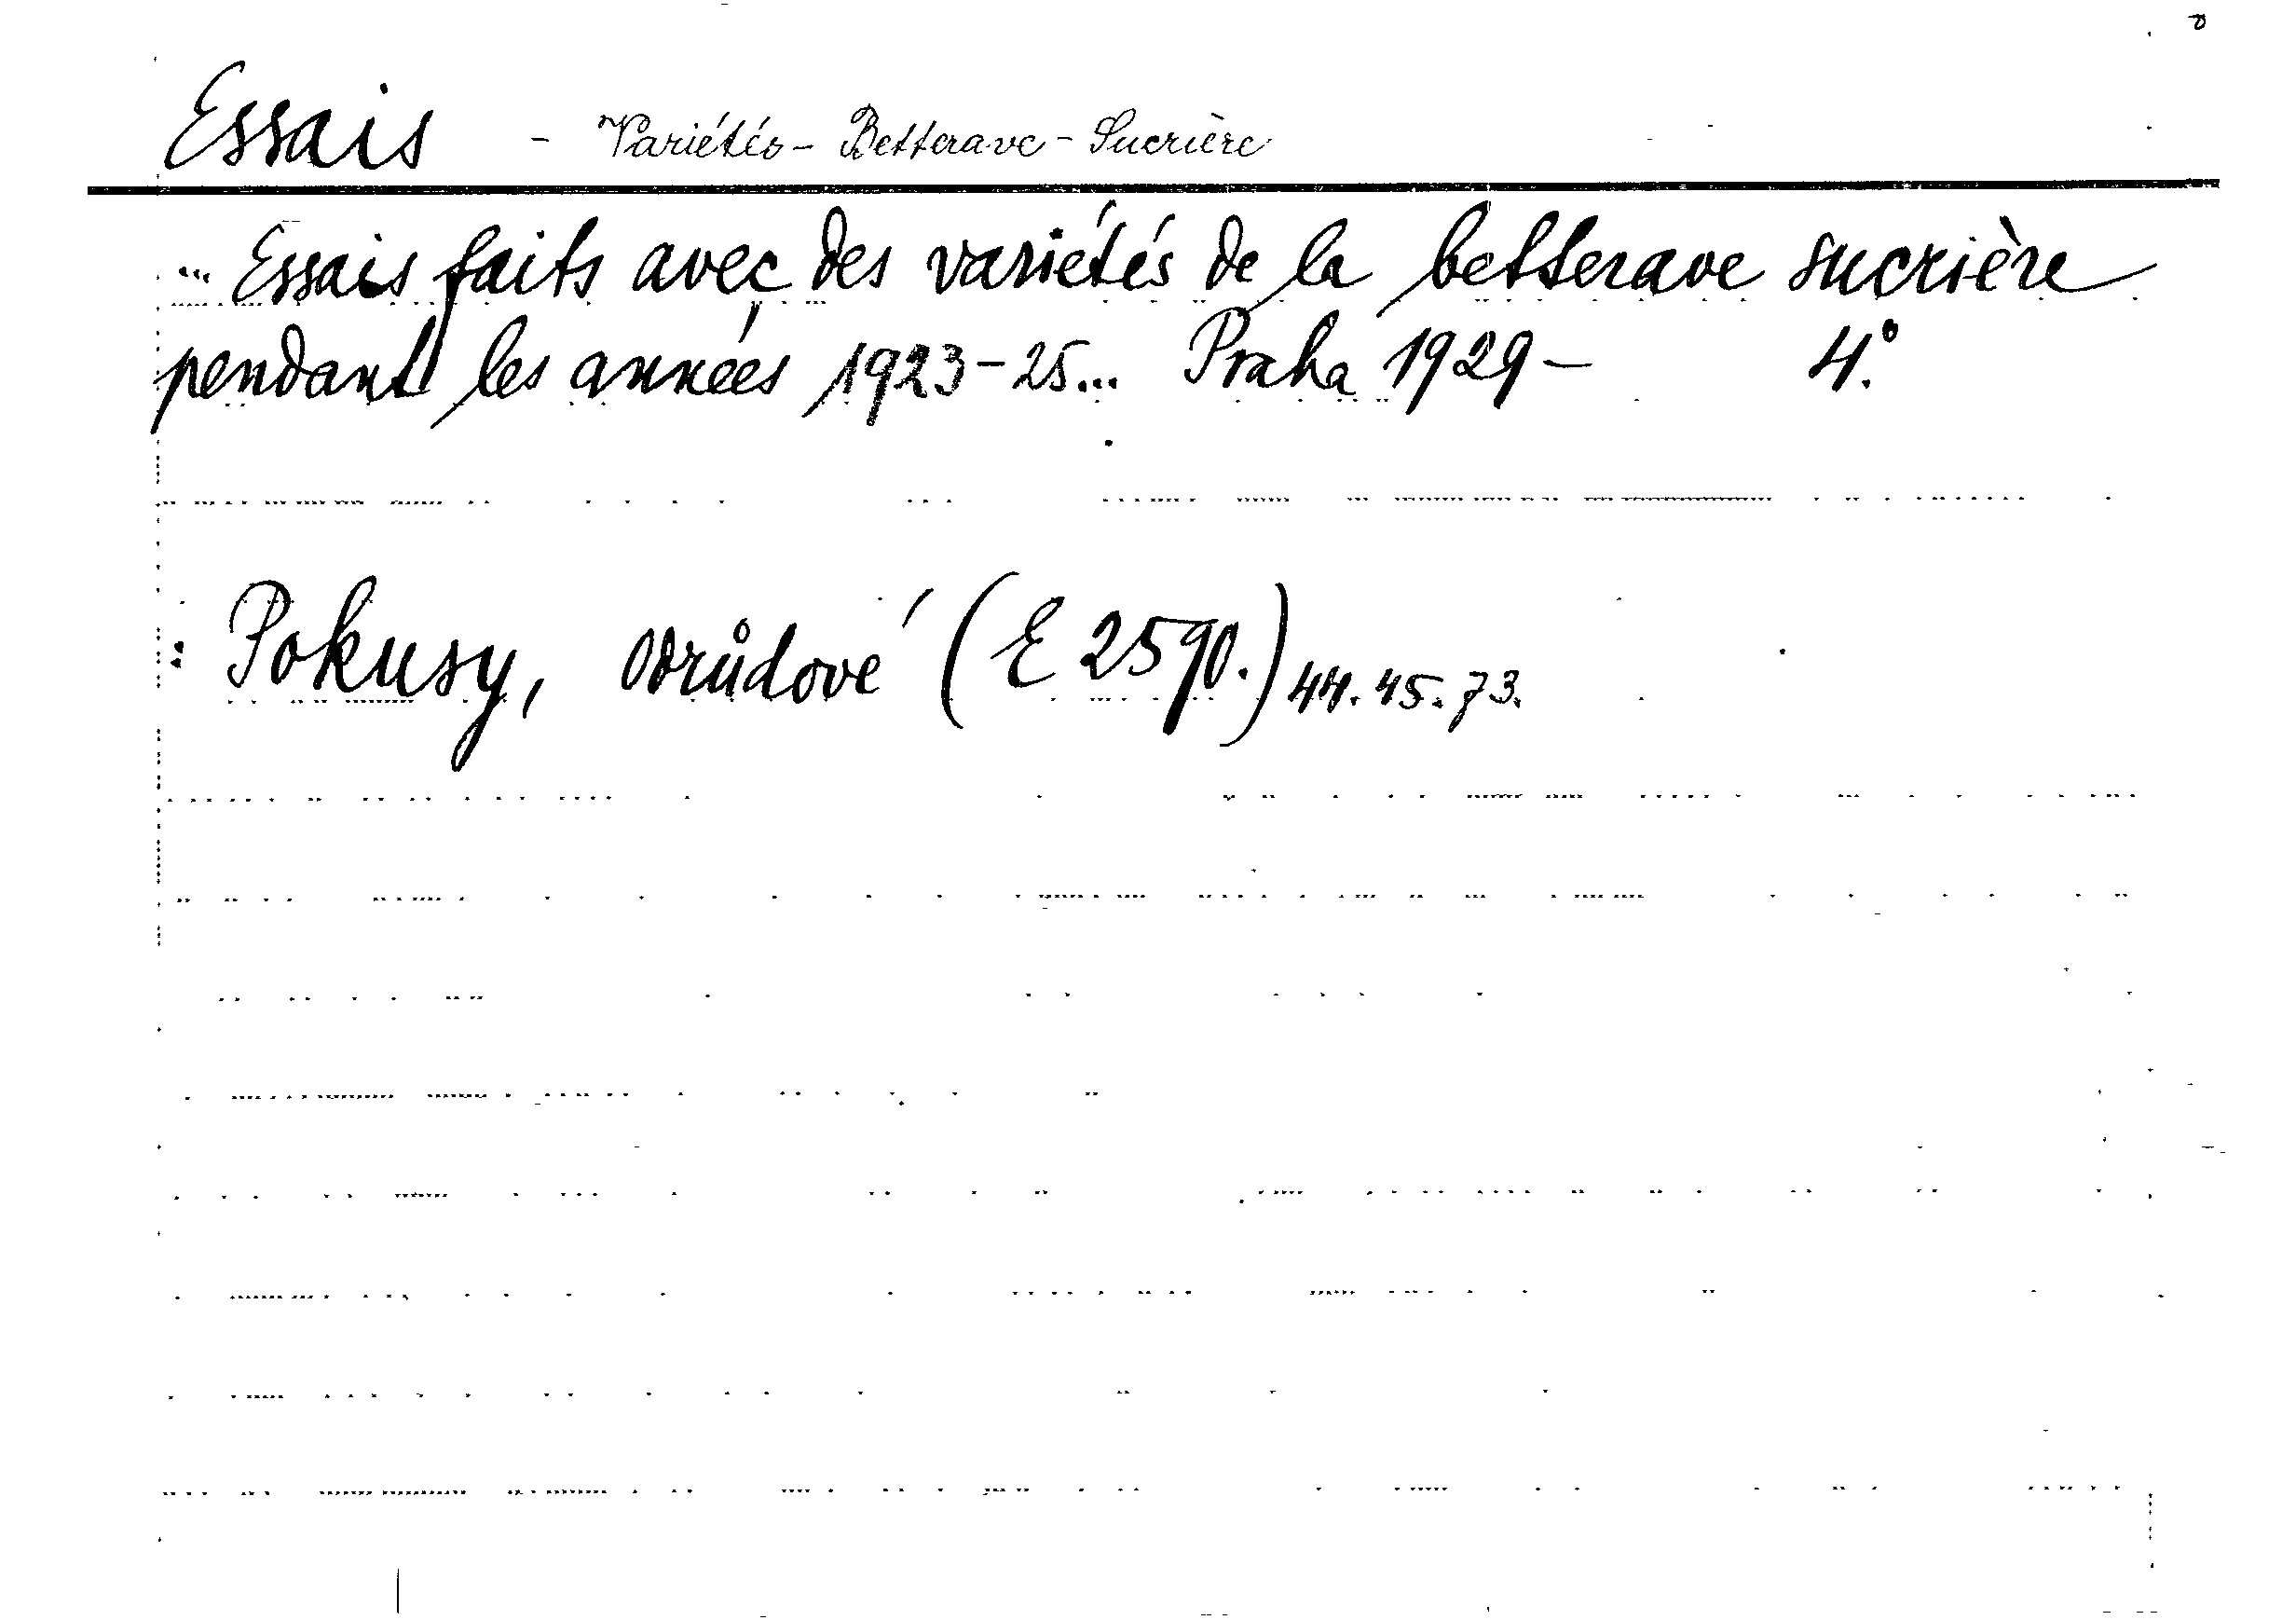 Essais - Variétés - Betterave - Sucrière
... Essais faits avec des variétés de la betterave sucrière
pendant les années 1923-25... Praha 1929- 4.°
: Pokusy, odrůdové (E 2590.) 44. 45. 73.